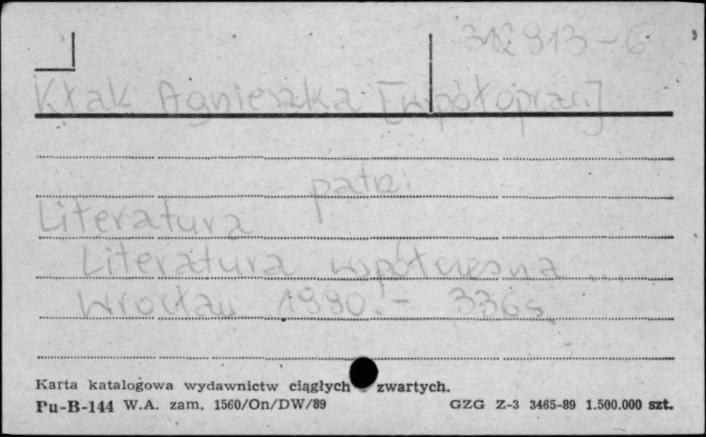 312913-6
Kłak Agnieszka [współoprac.]
patrz:
Literatura
Literatura współczesna ...
Wrocław 1990.- 336s.
Karta katalogowa wydawnictw ciągłych - zwartych.
Pu-B-144 W.A. zam. 1560/On/DW/89 GZG Z-3 3465-89 1.500.000 szt.